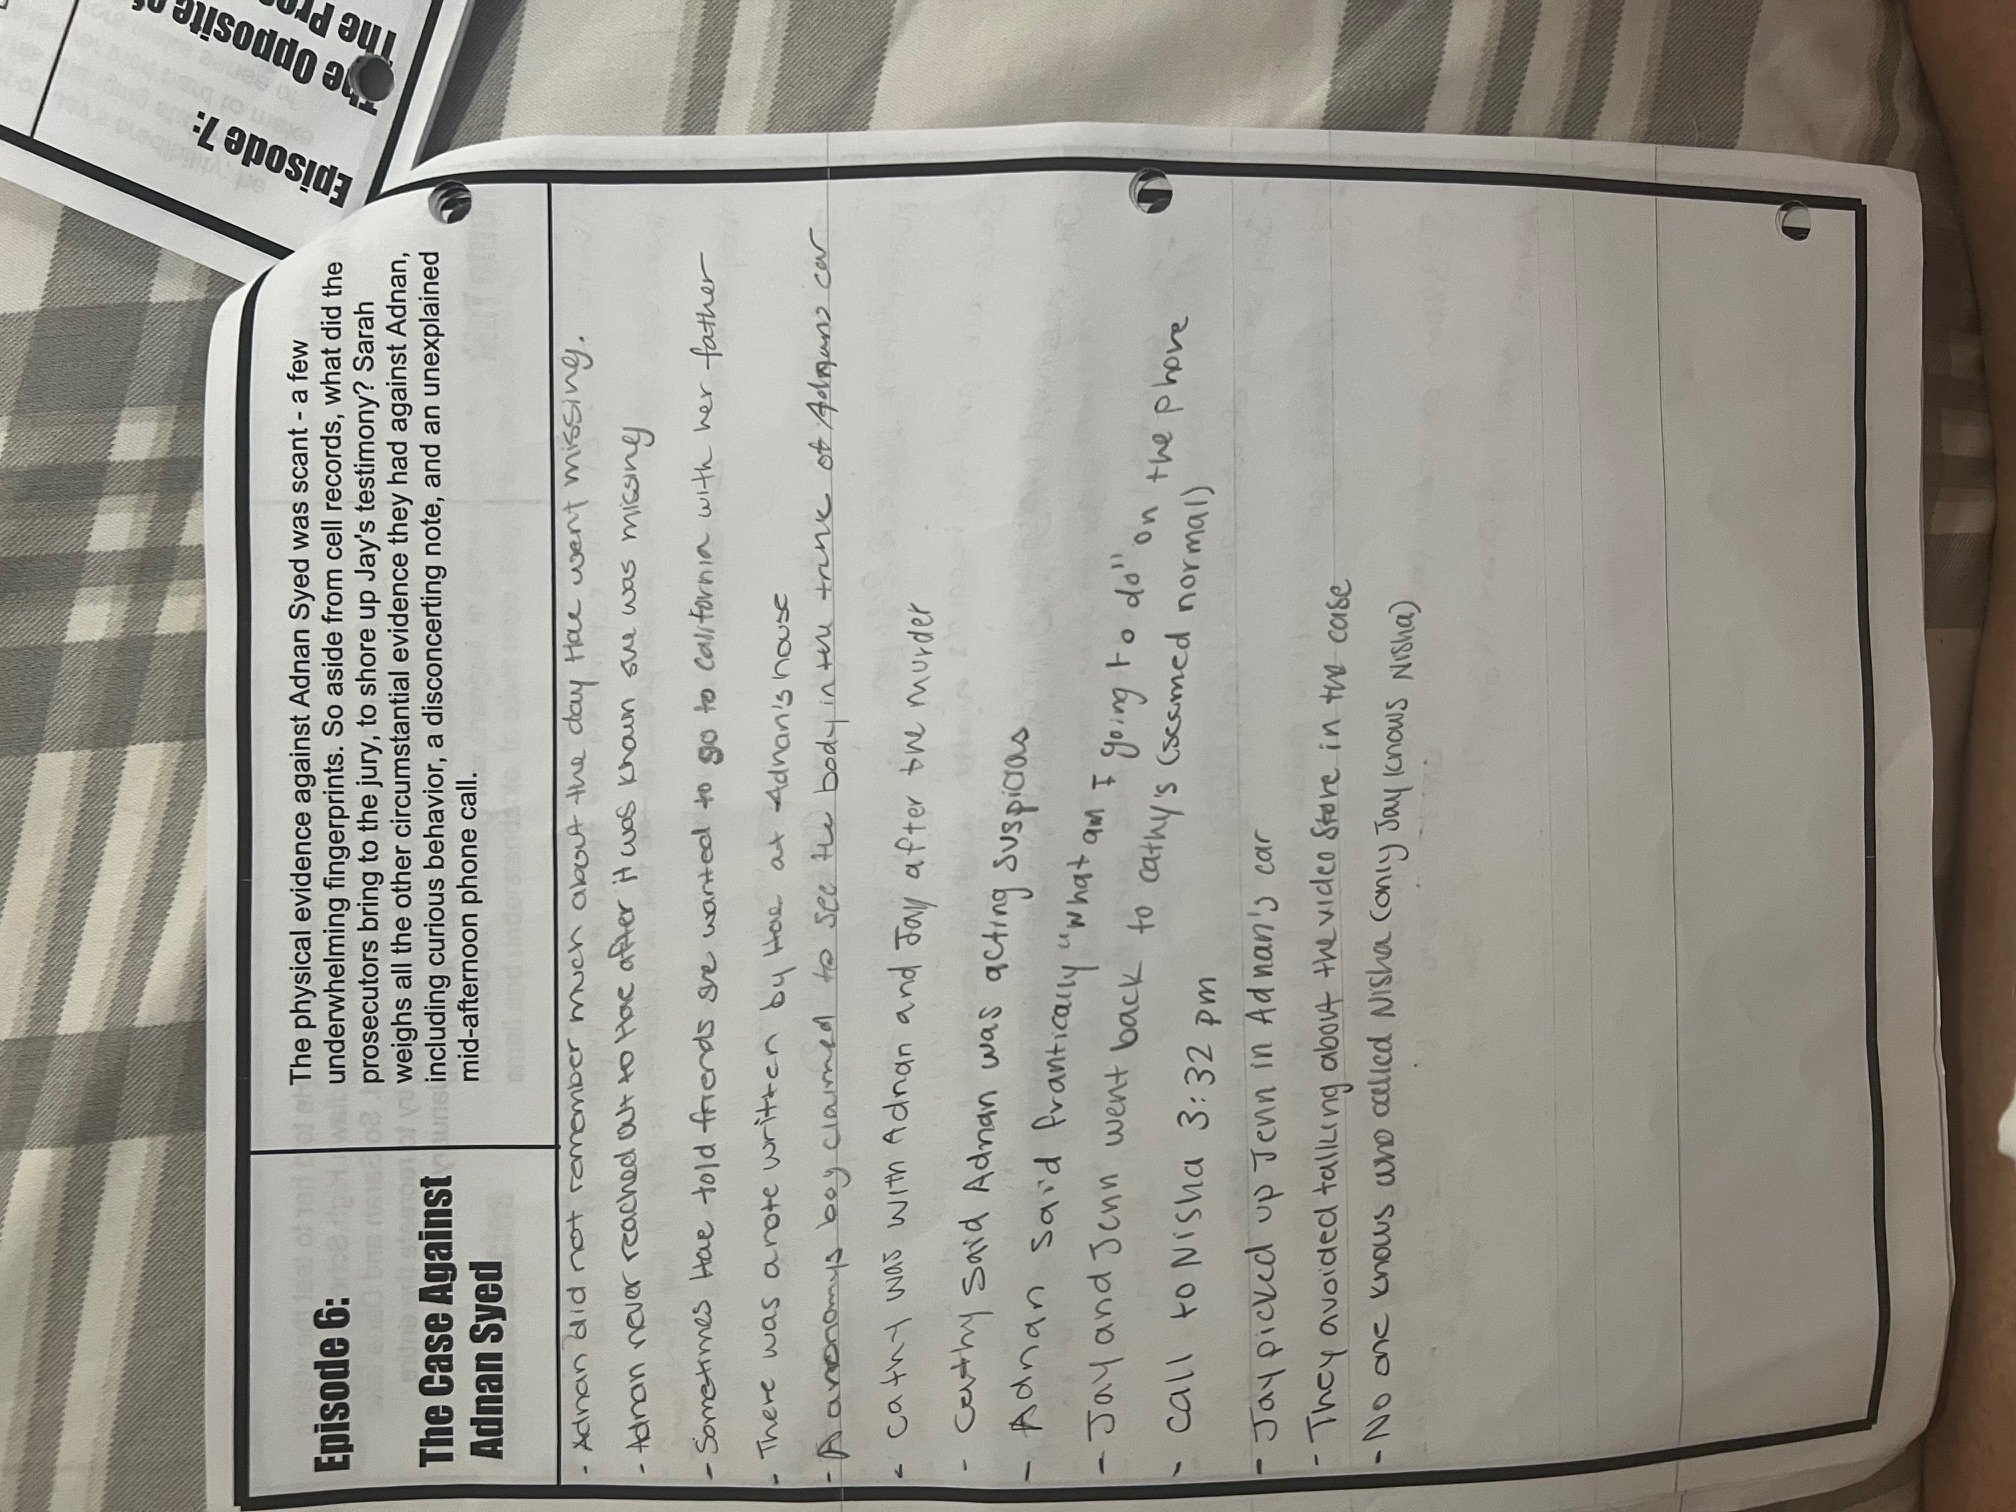 Episode 6:
The Case Against
Adnan Syed
The physical evidence against Adnan Syed was scant - a few
underwhelming fingerprints. So aside from cell records, what did the
prosecutors bring to the jury, to shore up Jay's testimony? Sarah
weighs all the other circumstantial evidence they had against Adnan,
including curious behavior, a disconcerting note, and an unexplained
mid-afternoon phone call.
- Adnan did not remember much about the day Hae went missing.
- Adnan never reached out to Hae after it was known she was missing
- Sometimes Hae told friends she wanted to go to california with her father
- There was a note written by Hae at Adnan's house
- A anonomys boy claimed to see the body in the trunk of Adnans car
- Cathy was with Adnan and Jay after the murder
- Cathy said Adnan was acting suspicias
- Adnan said frantically "what am I going to do" on the phone
- Jay and Jenn went back to cathy's (seemed normal)
- Call to Nisha 3:32 pm
- Jay picked up Jenn in Adnan's car
- They avoided talking about the video store in the case
- No one knows who called Nisha (only Jay knows Nisha)
Episode 7:
The Opposite of
The